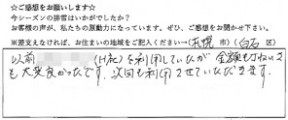 ☆ご感想をお願いします☆
今シーズンの除雪はいかがでしたか？
お客様の声が、私たちの原動力になっています。ぜひ、ご感想をお聞かせ下さい。
※差支えなければ、お住まいの地域をご記入ください→（札幌 市）（白石 区）
以前 （他社）を利用していたが 金額も丁ねいさ
も大変良かったです。次回も利用させていただきます。